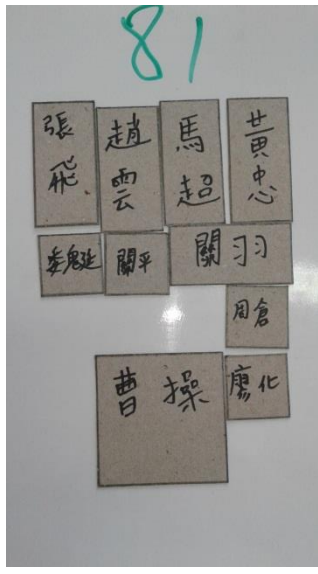 81
張飛 趙雲 馬超 黃忠
魏延 關平 關羽
周倉
曹操 廖化